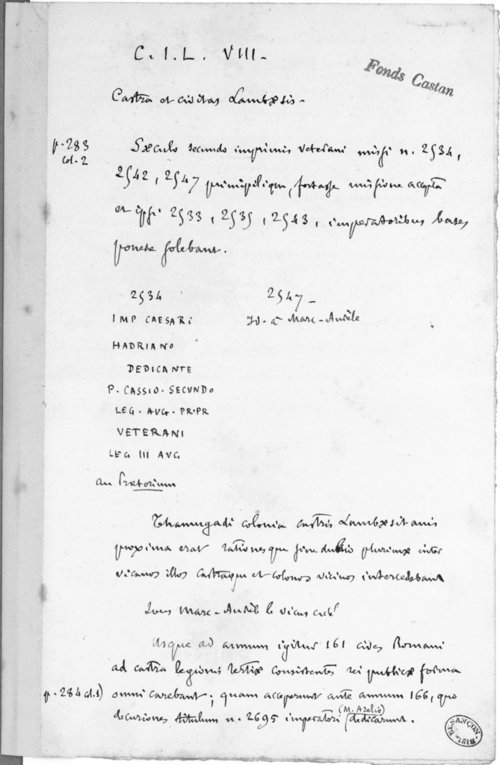 C. I. L. VIII.
Fonds Castan
Castra et civitas Lambæsis.
p. 283
col. 2
Sæculo secundo imprimis veterani missi n. 2534,
2542, 2547 primipilique, fortasse missione accepta
et ipsi 2533, 2535, 2543, imperatoribus bases
ponere solebant.
2534
2547 _
IMP CAESARI
Id. à Marc-Aurèle
HADRIANO
DEDICANTE
P. CASSIO. SECVNDO
LEG. AVG. PR. PR
VETERANI
LEG III AVG
au Prætorium
Thamugadi colonia castris Lambæsitanis
proxima erat rationesque sine dubio plurimæ inter
vicanos illos castraque et colonos vicinos intercedebant
Sous Marc-Aurèle le vicus
Usque ad annum igitur 161 cives Romani
ad castra legionis tertiæ consistentes rei publicæ forma
p. 284 col. 1)
omni carebant, quam acceperunt ante annum 166, quo
decuriones titulum n. 2695 imperatori (M. Aurelio) dedicarunt.
BIBL. BESANÇON